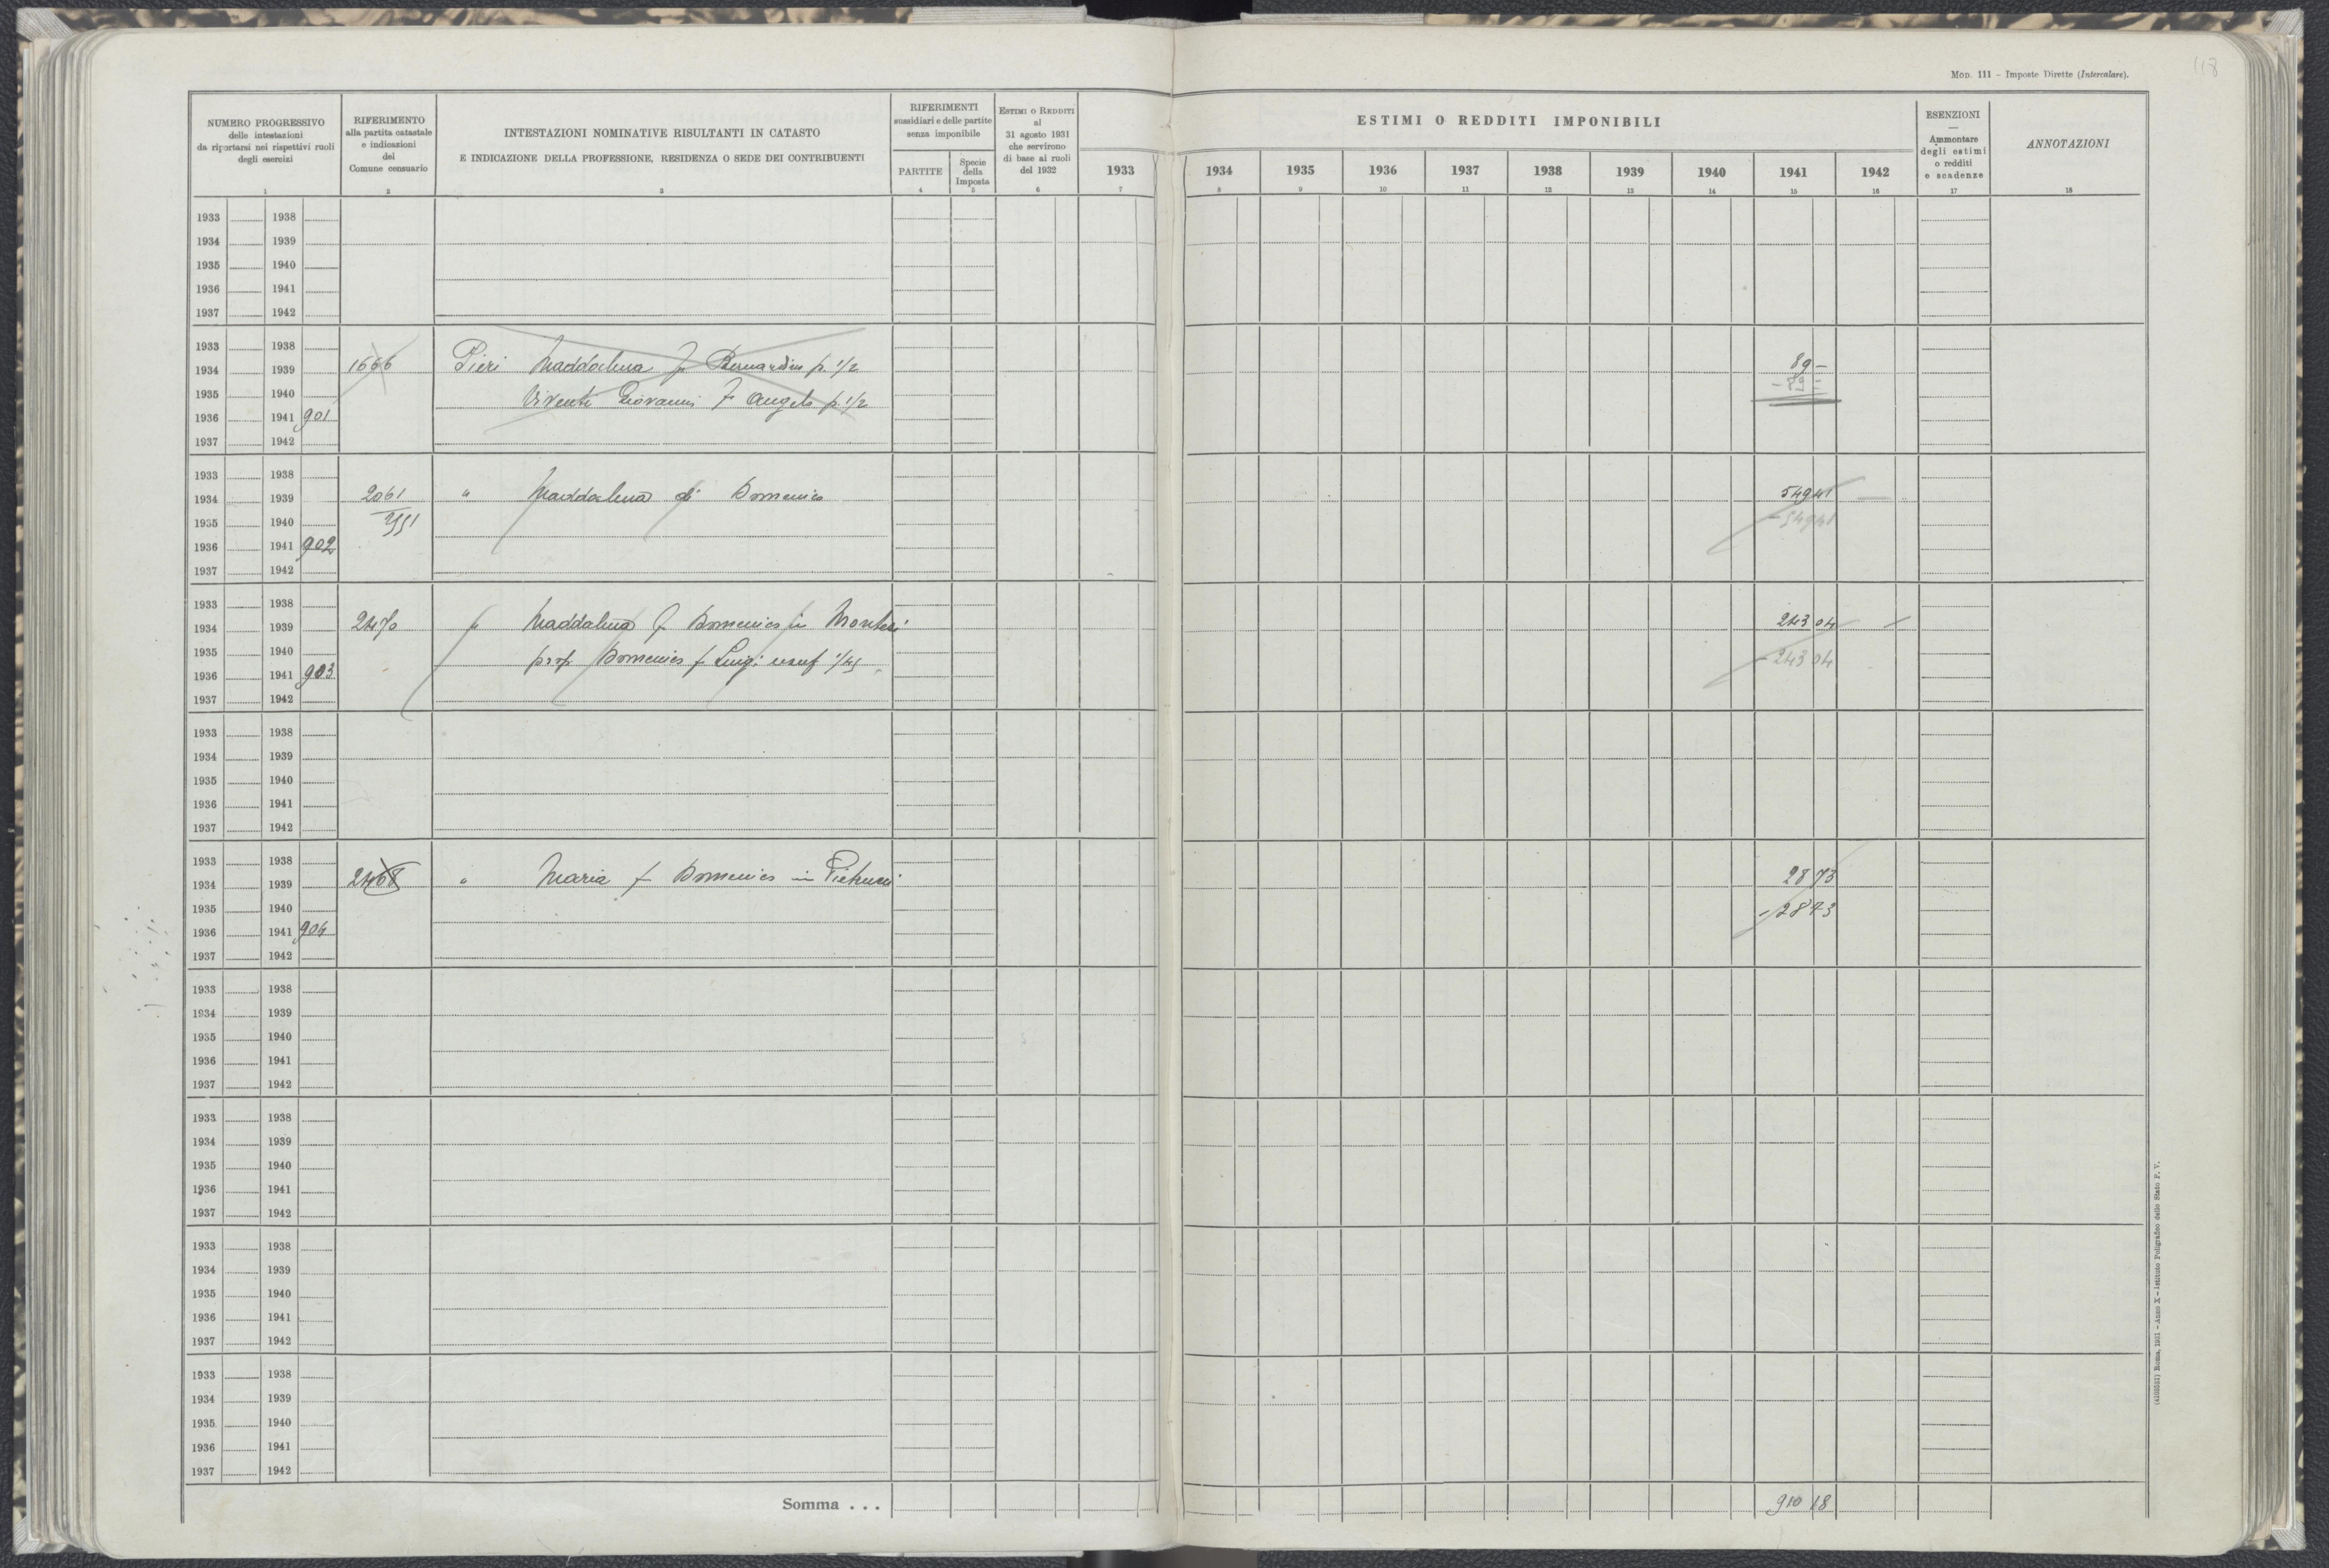 118
MOD. 111 – Imposte Dirette (Intercalare).
NUMERO PROGRESSIVO
delle intestazioni
da riportarsi nei rispettivi ruoli
degli esercizi
1
RIFERIMENTO
alla partita catastale
e indicazioni
del
Comune censuario
2
INTESTAZIONI NOMINATIVE RISULTANTI IN CATASTO
E INDICAZIONE DELLA PROFESSIONE, RESIDENZA O SEDE DEI CONTRIBUENTI
3
RIFERIMENTI
sussidiari e delle partite
senza imponibile
PARTITE
4
Specie
della
Imposta
5
ESTIMI O REDDITI
al
31 agosto 1931
che servirono
di base ai ruoli
del 1932
6
ESTIMI O REDDITI IMPONIBILI
1933 1934 1935 1936 1937 1938 1939 1940 1941 1942
7 8 9 10 11 12 13 14 15 16
ESENZIONI
—
Ammontare
degli estimi
o redditi
e scadenze
17
ANNOTAZIONI
18
1933 1938
1934 1939
1935 1940
1936 1941
1937 1942
1933 1938
1934 1939 1666 Pieri Maddalena f Bernardino p. 1/2 89 –
1935 1940 Viventi Giovanni f Angelo p. 1/2 – 89 =
1936 1941 901
1937 1942
1933 1938
1934 1939 2061 " Maddalena di Domenico 549 41
1935 1940 – 549 41
1936 1941 902
1937 1942
1933 1938
1934 1939 2470 " Maddalena f Domenico in 243 04
1935 1940 prop Domenico f Luigi usuf – 243 04
1936 1941 903
1937 1942
1933 1938
1934 1939
1935 1940
1936 1941
1937 1942
1933 1938
1934 1939 2468 " Maria f Domenico in Pietrucci 28 73
1935 1940 – 28 73
1936 1941 904
1937 1942
1933 1938
1934 1939
1935 1940
1936 1941
1937 1942
1933 1938
1934 1939
1935 1940
1936 1941
1937 1942
1933 1938
1934 1939
1935 1940
1936 1941
1937 1942
1933 1938
1934 1939
1935 1940
1936 1941
1937 1942
Somma . . . 910 18
Roma, 1931 – Anno X – Istituto Poligrafico dello Stato P. V.